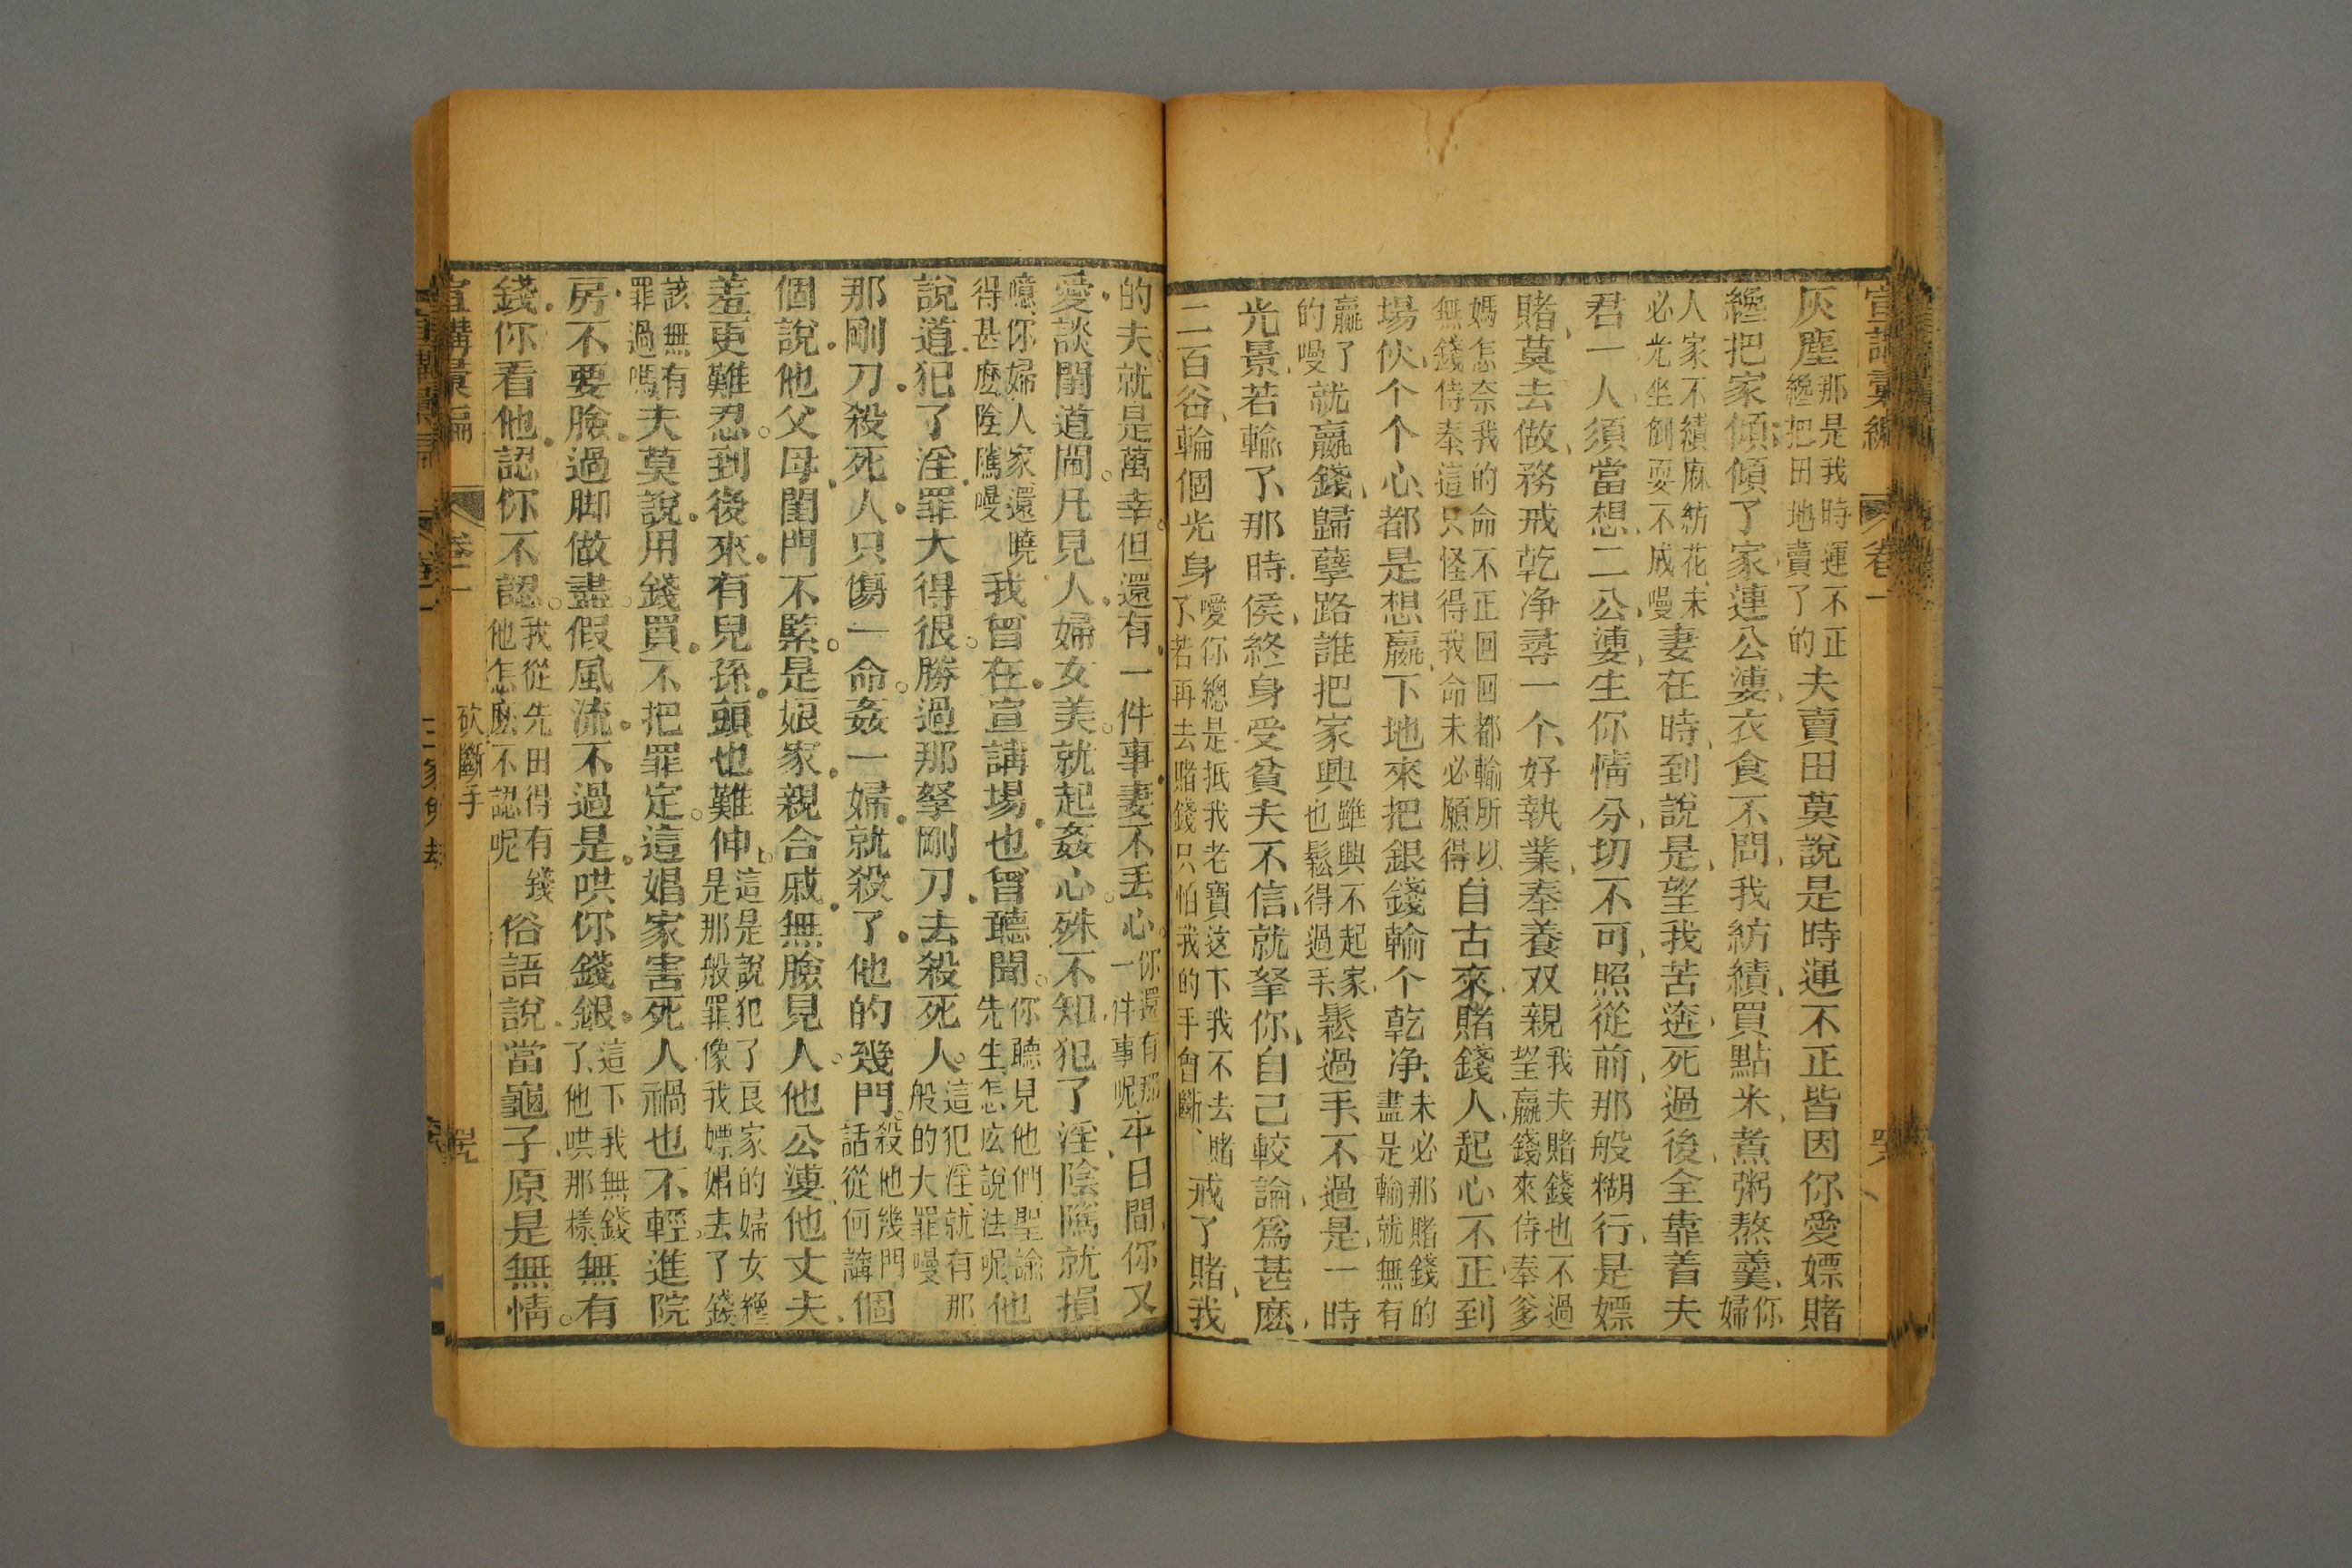 宣講彙編 卷一
灰塵那是我時運不正纔把田地賣了的夫賣田莫說是時運不正皆因你愛嫖賭
纔把家傾傾了家連公婆衣食不問我紡績買點米煮粥熬羹你婦
人家不績麻紡花未必光坐倒耍不成嗄妻在時到說是望我苦逩死過後全靠着夫
君一人須當想二公婆生你情分切不可照從前那般糊行是嫖
賭莫去做務戒乾净尋一个好執業奉養双親我夫賭錢也不過望贏錢來侍奉爹
媽怎奈我的命不正回回都輸所以無錢侍奉這只怪得我命未必願得自古來賭錢人起心不正到
場伙个个心都是想贏下地來把銀錢輸个乾净未必那賭錢的盡是輸就無有
贏了的嗄就贏錢歸孽路誰把家興雖興不起家也鬆得過手鬆過手不過是一時
光景若輸了那時侯終身受貧夫不信就拏你自己較論爲甚麽
二百谷輸個光身噯你總是抵我老寶这下我不去賭了若再去賭錢只怕我的手會斷戒了賭我
的夫就是萬幸但還有一件事妻不丢心你還有那一件事呢平日間你又
愛談閨道閫凡見人婦女美就起姦心殊不知犯了淫陰隲就損
噫你婦人家還曉得甚麽陰隲嗄我曾在宣講場也曾聽聞你聽見他們聖諭先生怎庅說法呢他
說道犯了淫罪大得很勝過那拏剛刀去殺死人這犯淫就有那般的大罪嗄
那剛刀殺死人只傷一命姦一婦就殺了他的幾門殺他幾門話從何講個
個說他父母閨門不緊是娘家親合戚無臉見人他公婆他丈夫
羞更難忍到後來有兒孫頭也難伸這是說犯了良家的婦女纔是那般罪像我嫖娼去了錢
該無有罪過嗎夫莫說用錢買不把罪定這娼家害死人禍也不輕進院
房不要臉過脚做盡假風流不過是哄你錢銀這下我無錢了他哄那樣無有
錢你看他認你不認我從先田得有錢他怎麽不認呢俗語說當龜子原是無情
宣講彙編 卷一 砍斷手